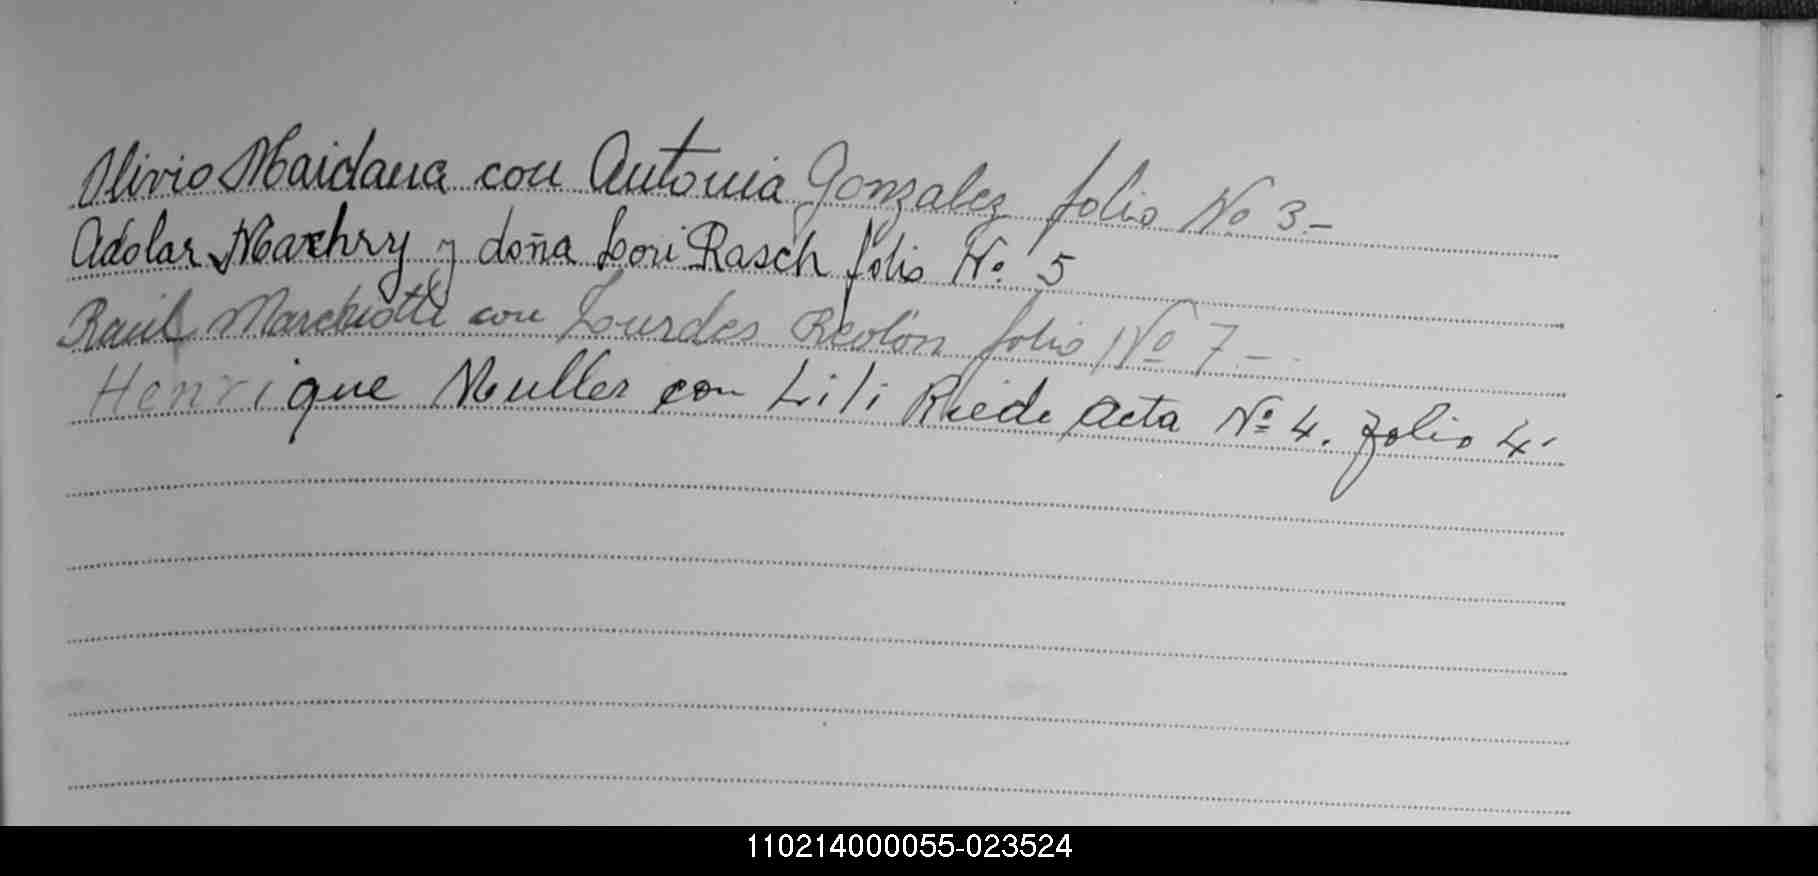 Olivio Maidana con Antonia Gonzalez folio No 3.-
Adolar Marchry y doña Lori Rasch folio No. 5
Raúl Marchiotti con Lourdes Reolon folio Nº 7-.
Henrique Muller con Lili Riede Acta Nº 4. folio 4.
110214000055-023524